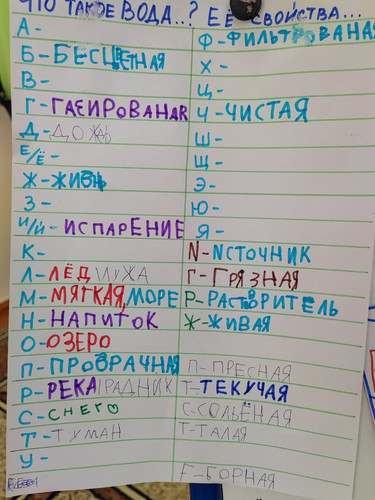 ЧТО ТАКОЕ ВОДА..? ЕЁ СВОЙСТВА...
А-
Б-БЕСЦВЕТНАЯ
В-
Г-ГАЗИРОВАНАЯ
Д-ДОЖДЬ
Е/Ё-
Ж-ЖИЗНЬ
З-
И/Й-ИСПАРЕНИЕ
К-
Л-ЛЁД, ЛУЖА
М-МЯГКАЯ, МОРЕ
Н-НАПИТОК
О-ОЗЕРО
П-ПРОЗРАЧНАЯ
Р-РЕКА, РАДНИК
С-СНЕГО
Т-ТУМАН
У-
Ф-ФИЛЬТРОВАНАЯ
Х-
Ц-
Ч-ЧИСТАЯ
Ш-
Щ-
Э-
Ю-
Я-
И-ИСТОЧНИК
Г-ГРЯЗНАЯ
Р-РАСТВОРИТЕЛЬ
Ж-ЖИВАЯ
П-ПРЕСНАЯ
Т-ТЕКУЧАЯ
С-СОЛЬЁНАЯ
Т-ТАЛАЯ
Г-БОРНАЯ